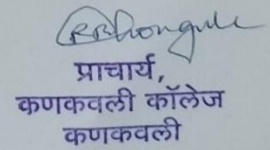 प्राचार्य,
कणकवली कॉलेज
कणकवली